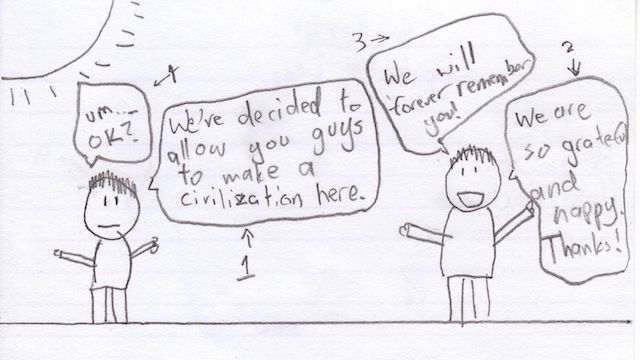 1
We've decided to
allow you guys
to make a
civilization here.
2
We are
so grateful
and
happy.
Thanks!
3
We will
forever remember
you!
4
um....
OK?